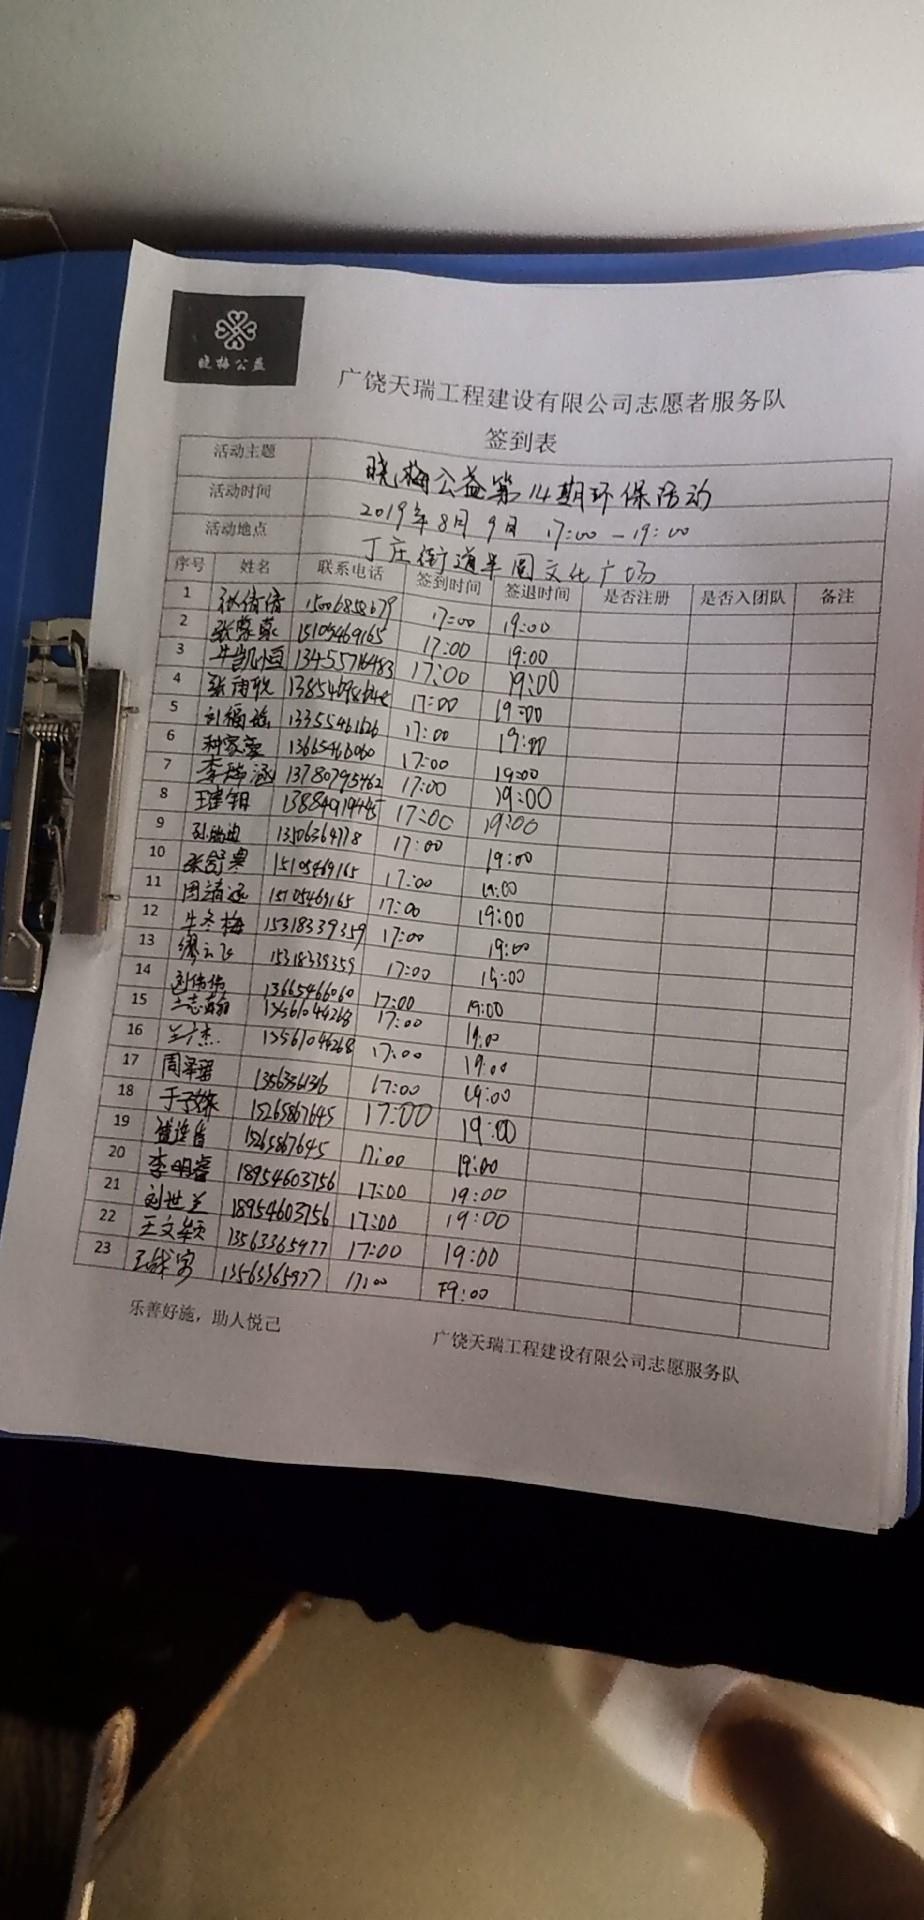 晓梅公益
广饶天瑞工程建设有限公司志愿者服务队
签到表
活动主题 晓梅公益第14期环保活动
活动时间 2019年8月9日 17:00-19:00
活动地点 丁庄街道半园文化广场
序号 姓名 联系电话 签到时间 签退时间 是否注册 是否入团队 备注
1 张倩倩 17:00 19:00
2 张蒙蒙 15105469165 17:00 19:00
3 牛凯恒 13455716483 17:00 19:00
4 17:00 19:00
5 刘福瑶 13355461626 17:00 19:00
6 13665466060 17:00 19:00
7 李梓涵 13780795462 17:00 19:00
8 13884919445 17:00 19:00
9 13106364778 17:00 19:00
10 张舒寒 15105469165 17:00 19:00
11 周靖涵 15105469165 17:00 19:00
12 牛冬梅 15318339359 17:00 19:00
13 缪云飞 15318339359 17:00 19:00
14 刘伟伟 13665466060 17:00 19:00
15 兰志翰 13561044268 17:00 19:00
16 兰广杰 13561044268 17:00 19:00
17 周泽瑶 17:00 19:00
18 于子姝 15265867645 17:00 19:00
19 15265867645 17:00 19:00
20 李明睿 18954603756 17:00 19:00
21 刘世兰 18954603756 17:00 19:00
22 王文颖 13563365977 17:00 19:00
23 13563365977 17:00 19:00
乐善好施，助人悦己
广饶天瑞工程建设有限公司志愿服务队